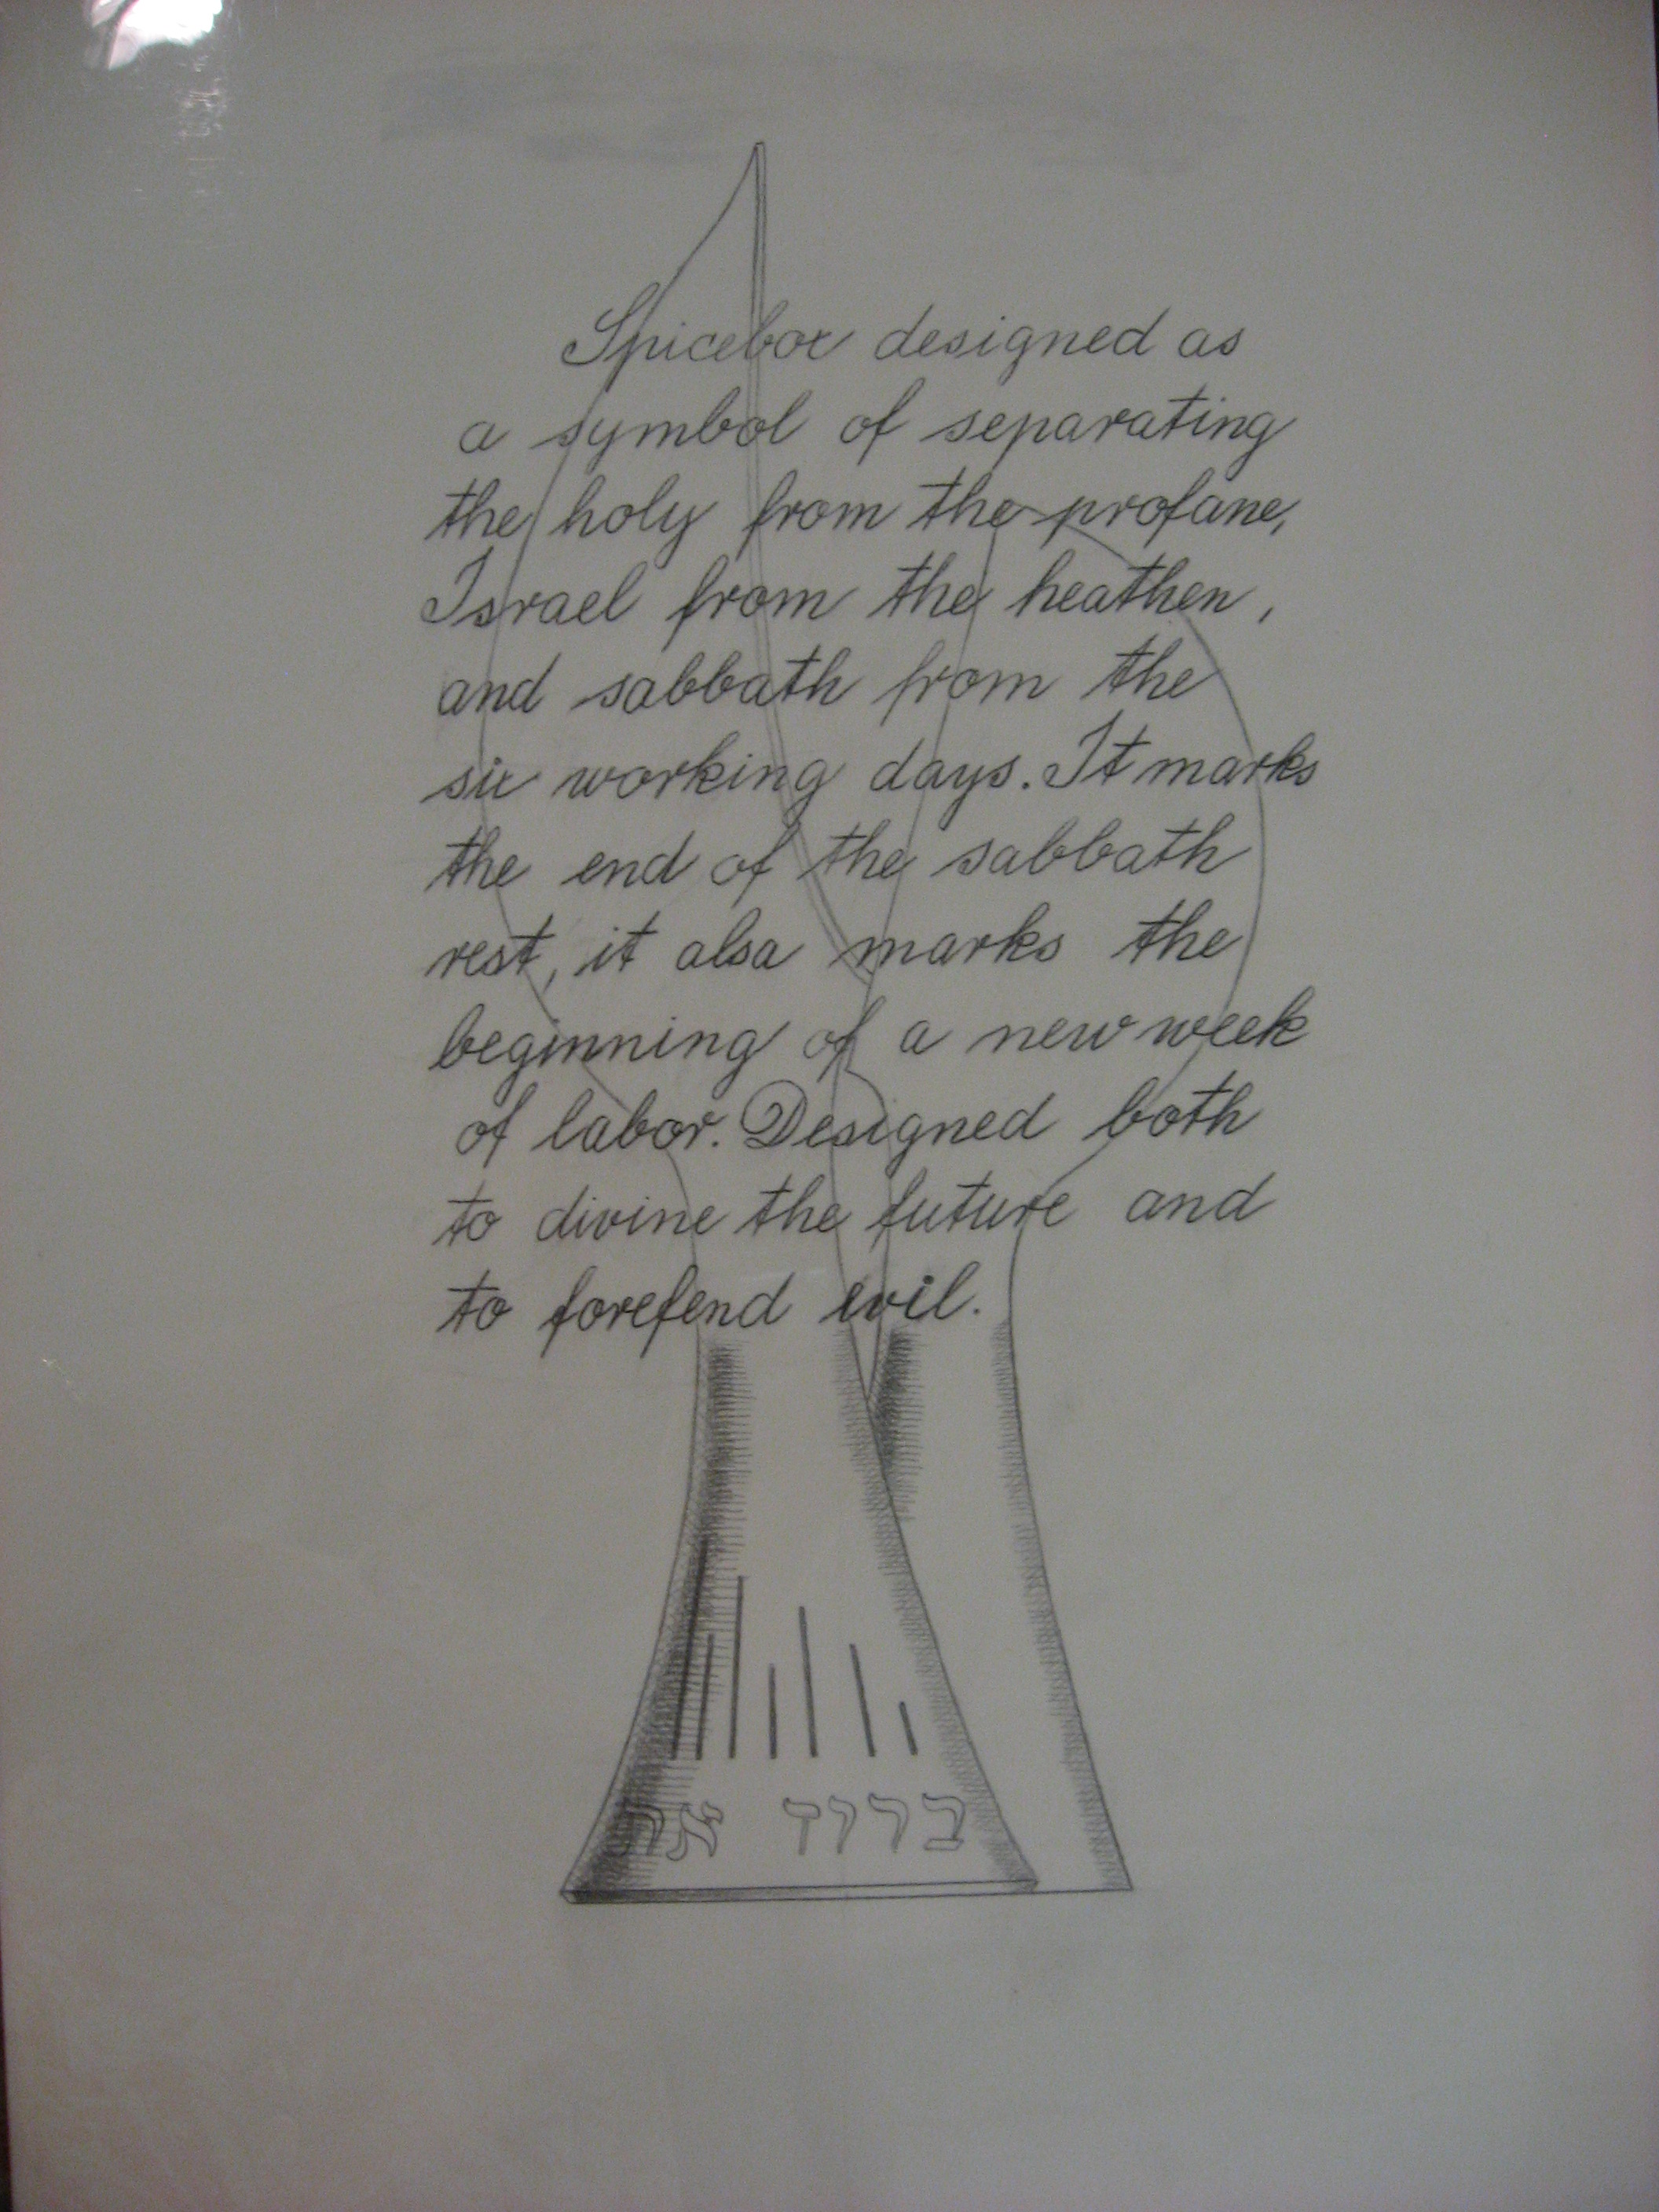 Spicebox designed as
a symbol of separating
the holy from the profane,
Israel from the heathen,
and sabbath from the
six working days. It marks
the end of the sabbath
rest, it also marks the
beginning of a new week
of labor. Designed both
to divine the future and
to forefend evil.
ברוך את